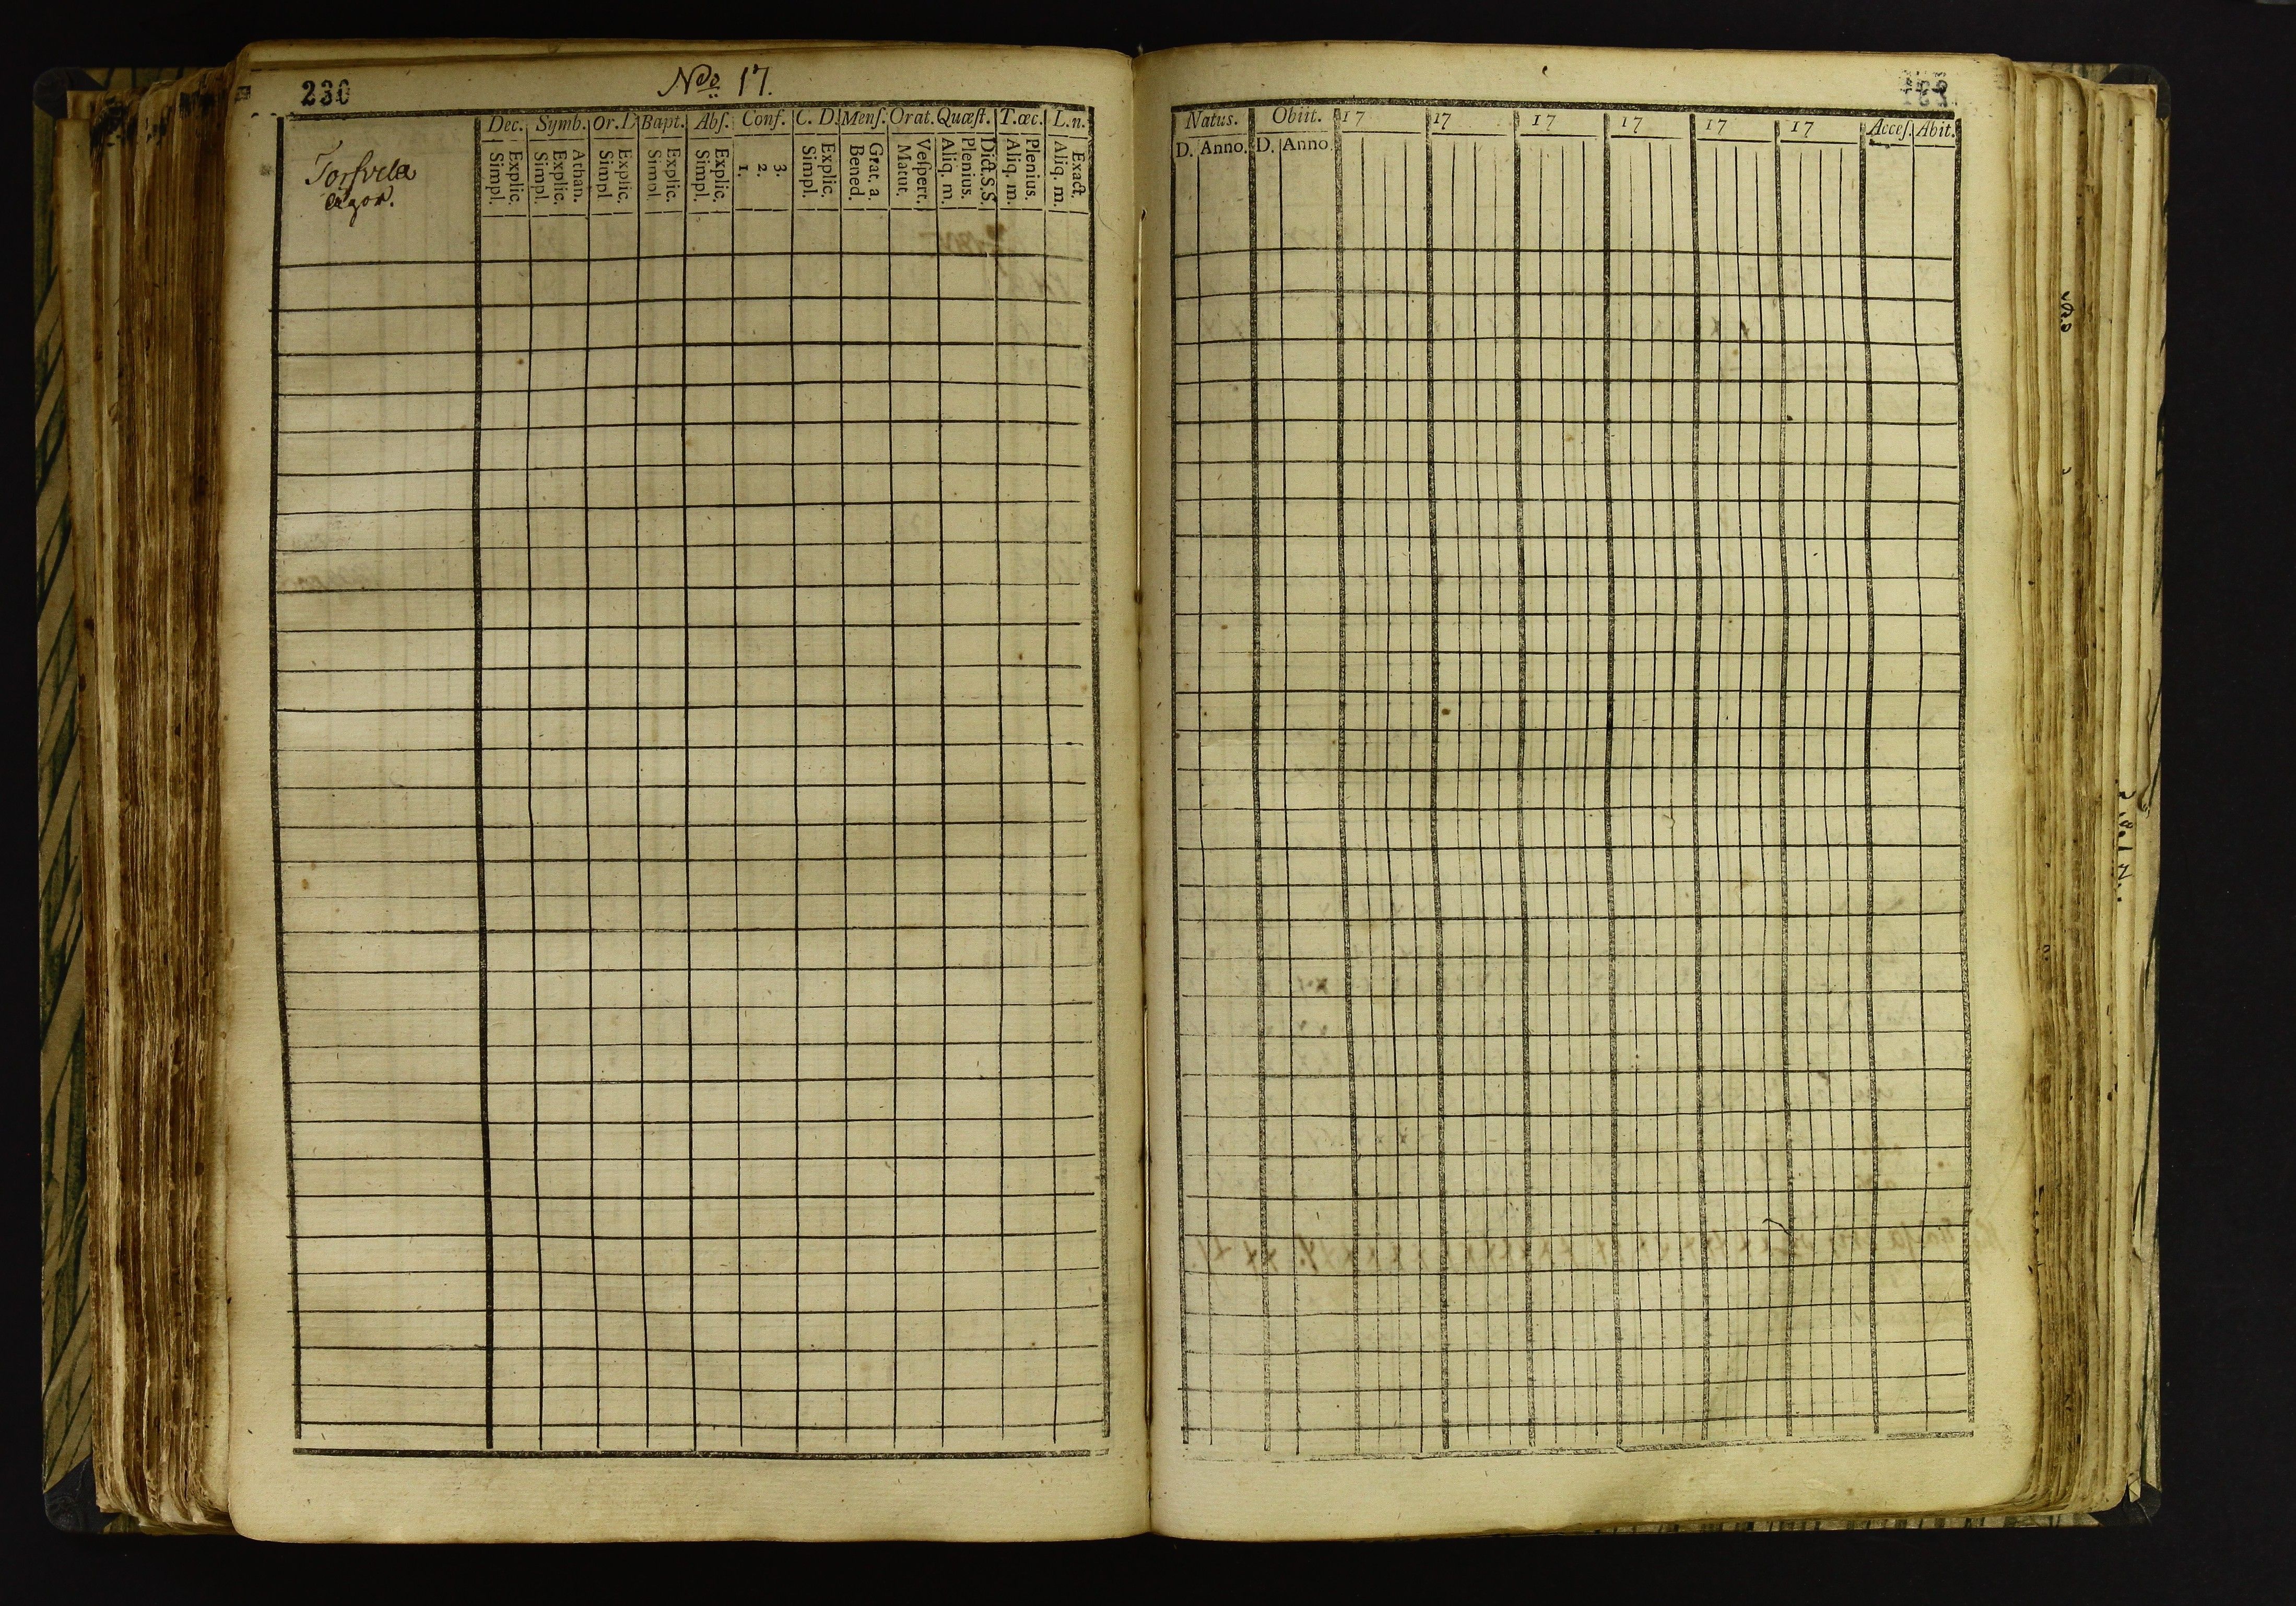 230
Nro 17.
Dec. Symb. Or. D. Bapt. Abſ. Conf. C. D. Menſ. Orat. Quæſt. T. œc. L. n.
Simpl. Explic. Simpl. Explic. Athan. Simpl Explic. Simpl. Explic. Simpl. Explic. 1. 2. 3. Simpl. Explic. Bened. Grat. a. Matut. Veſpert. Aliq. m. Plenius. Dict. S.S. Aliq. m. Plenius. Aliq. m. Exact.
Torſvela
ägor.
231
Natus. Obiit. 17 17 17 17 17 17 Acceſ. Abit.
D. Anno. D. Anno.